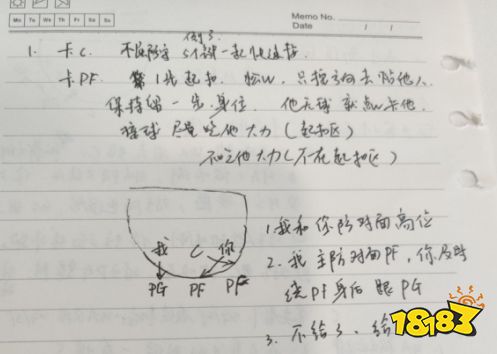 Memo No.
Mo Tu We Th Fr Sa Su
Date / /
1. 卡C. 不防守 5个键一起
卡PF. 第1先起扣. 松W. 只按方向去贴他人.
保持留一步身位. 他无球 就点W卡他.
接球尽量吃他大力(起扣区)
不吃他大力(不在起扣区)
我 C 你
PG PF PF
1. 我和你防对面高位
2. 我主防对面PF, 你及时
绕PF身后跟PG
3. 不给3, 给
18183